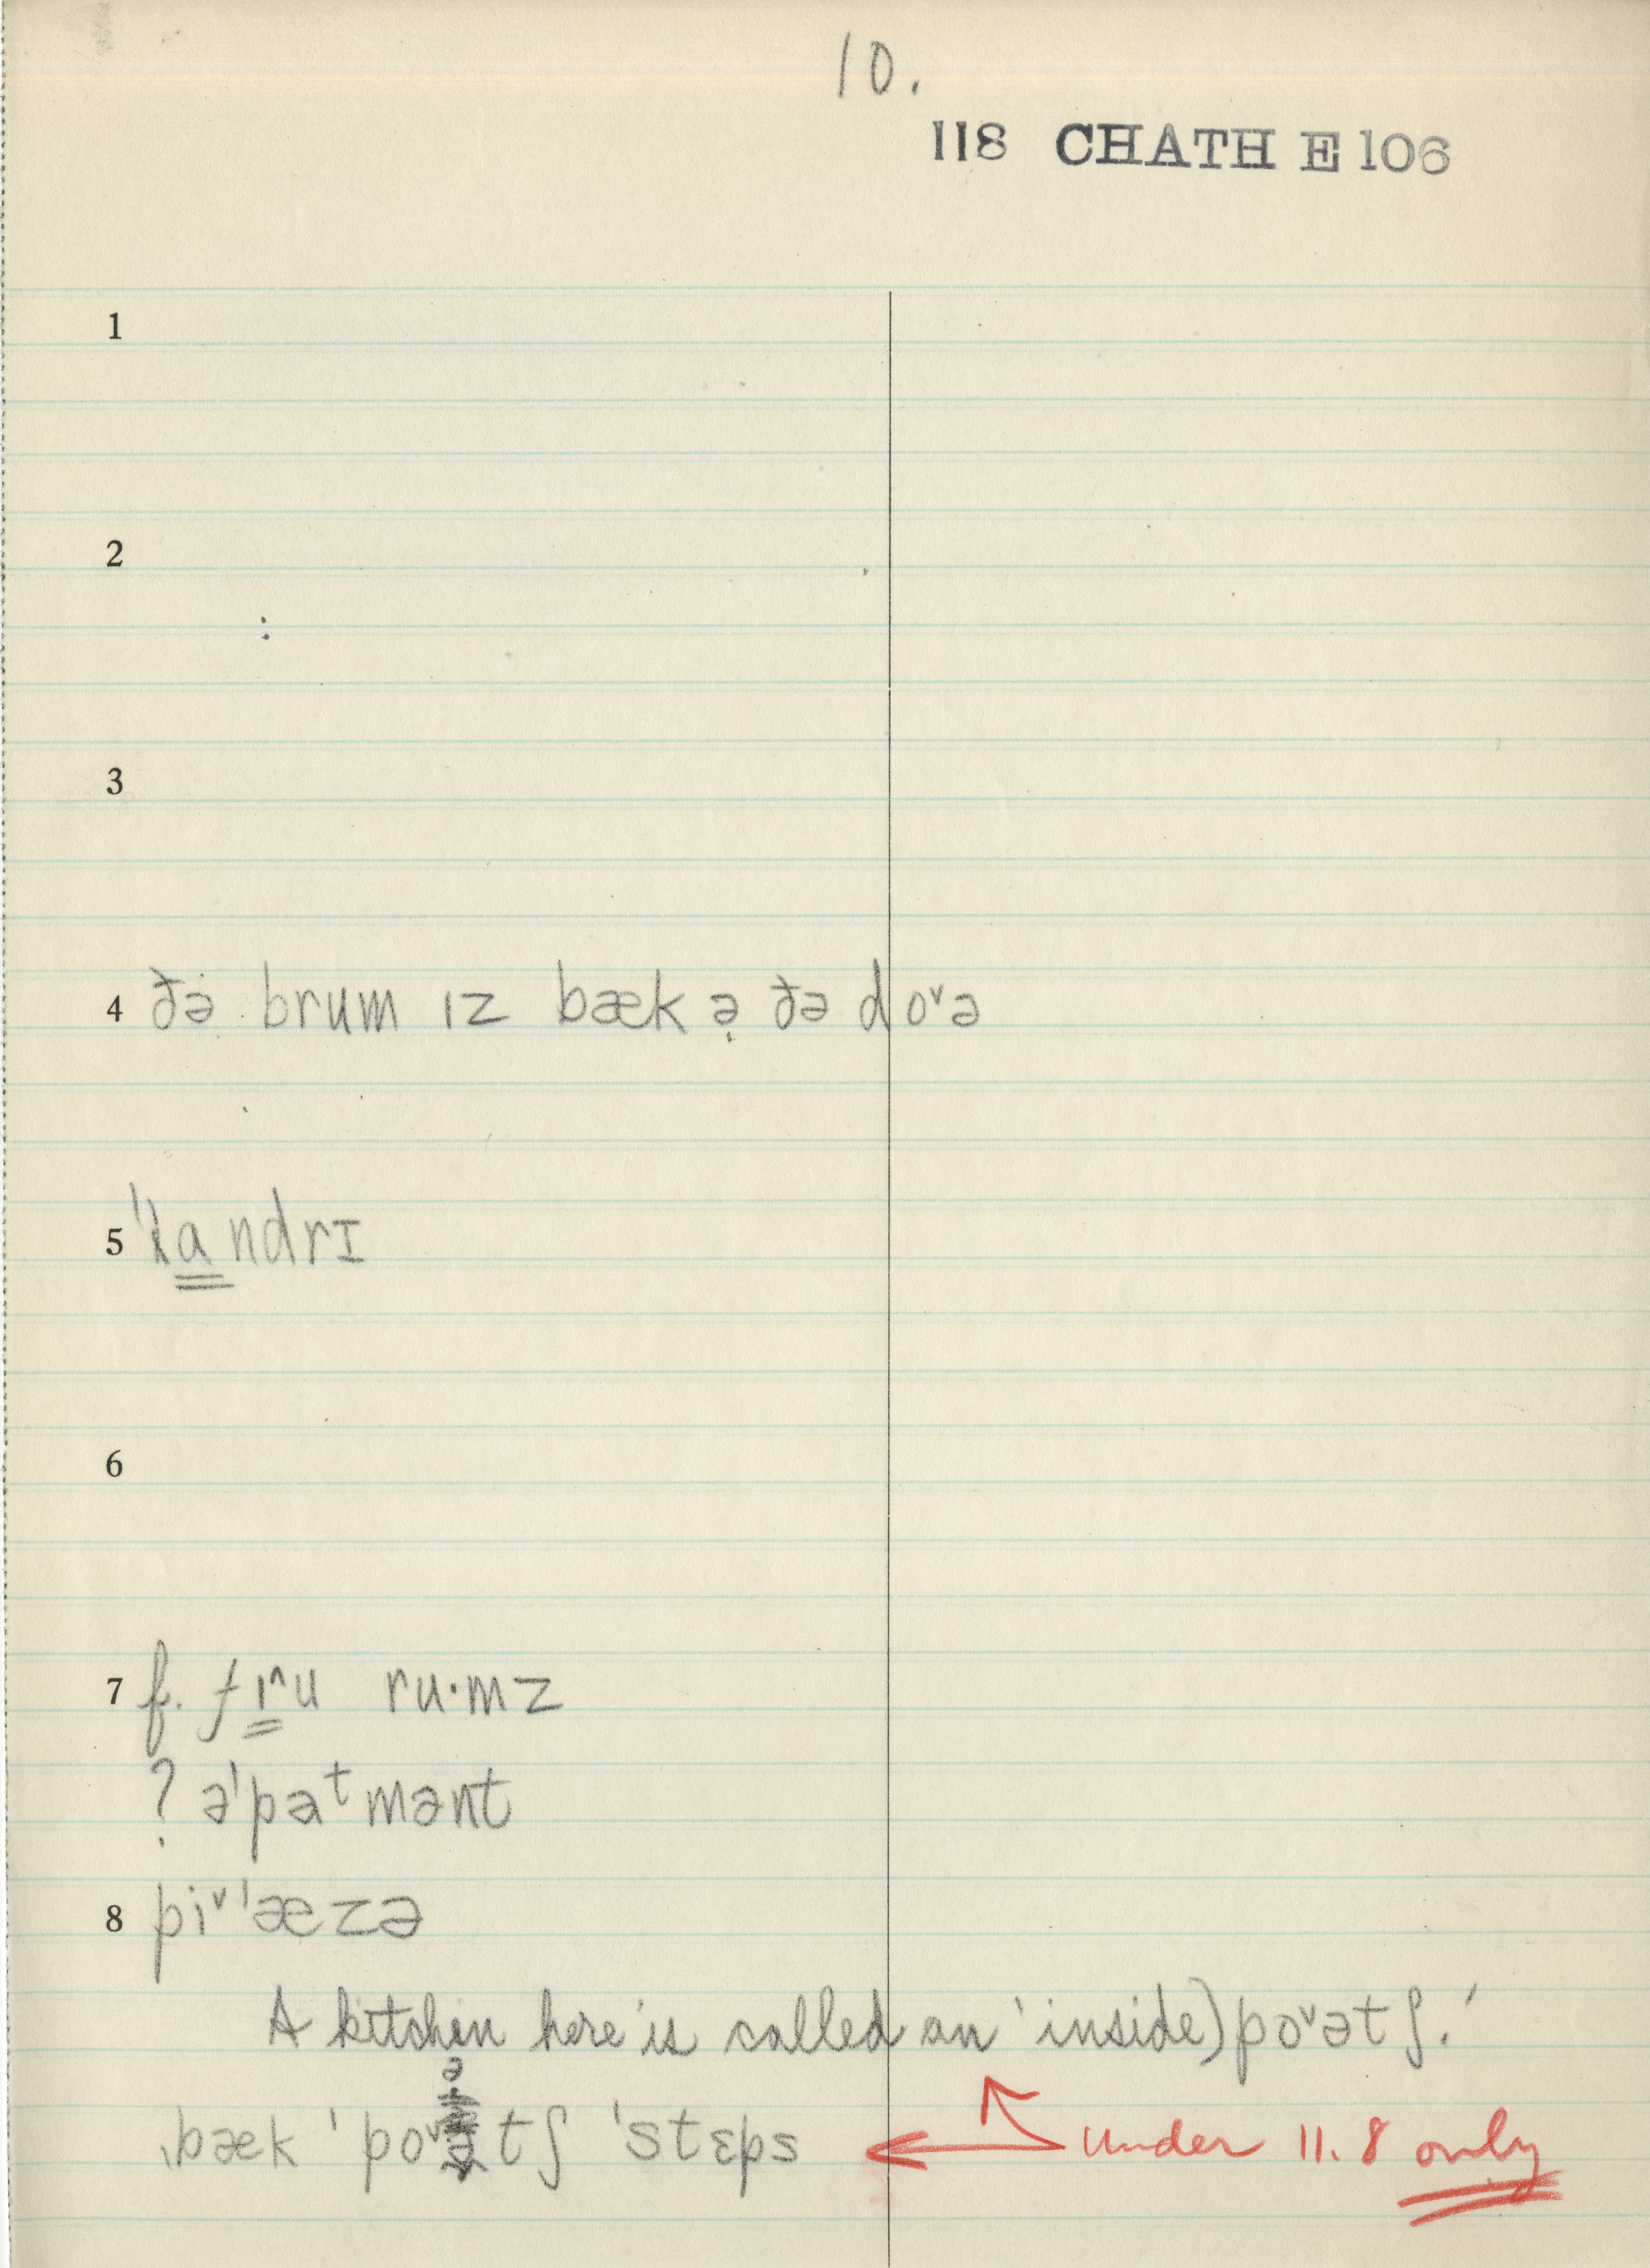 10.
118 CHATH E 106
1
2
3
4 ðə brum ɪz bæk ə̣ ðə doᵛə
5 ˈlandrɪ
6
7 f. fru ru·mz
? əˈpaᵗmənt
8 piᵛˈæzə
A kitchen here is called an 'inside) poᵛətʃ.'
ˌbæk ˈpoᵛətʃ ˈstɛps under 11.8 only